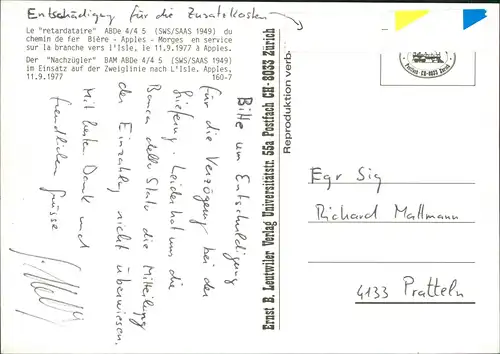 Entschädigung für die Zusatzkosten
Le "retardataire" ABDe 4/4 5 (SWS/SAAS 1949) du
chemin de fer Bière - Apples - Morges en service
sur la branche vers l'Isle, le 11.9.1977 à Apples.
Der "Nachzügler" BAM ABDe 4/4 5 (SWS/SAAS 1949)
im Einsatz auf der Zweiglinie nach L'Isle. Apples,
11.9.1977 160-7
Bitte um Entschuldigung
für die Verzögerung bei der
Lieferung. Leider hat uns die
Banca dello Stato die Mitteilung
der Einzahlung nicht überwiesen.
Mit bestem Dank und
freundlichen Grüssen
Ernst B. Leutwiler Verlag Universitätstr. 55a Postfach CH-8033 Zürich
Reproduktion verb
Postfach - CH-8033 Zürich
Egr Sig
Richard Mattmann
4133 Pratteln